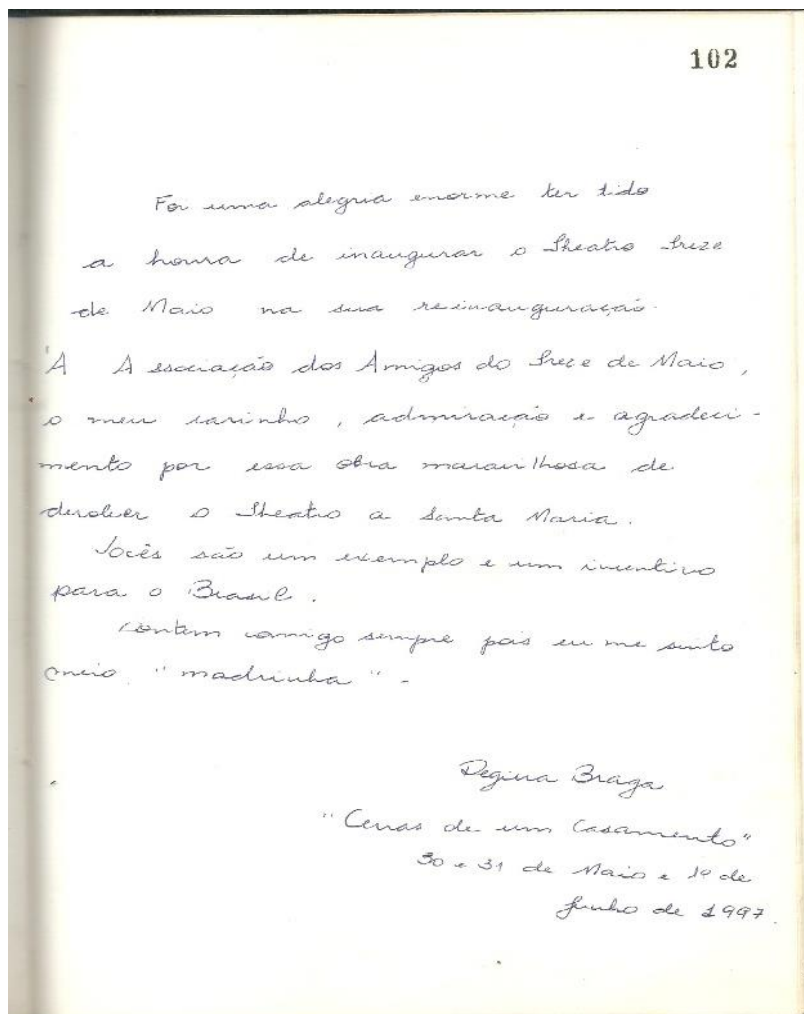 102
Foi uma alegria enorme ter tido
a honra de inaugurar o Theatro Treze
de Maio na sua reinauguração.
À Associação dos Amigos do Treze de Maio,
o meu carinho, admiração e agradeci-
mento por essa obra maravilhosa de
devolver o Theatro a Santa Maria.
Vocês são um exemplo e um incentivo
para o Brasil.
Contem comigo sempre pois eu me sinto
meio "madrinha".
Regina Braga
"Cenas de um Casamento"
30 e 31 de Maio e 1º de
Junho de 1997.